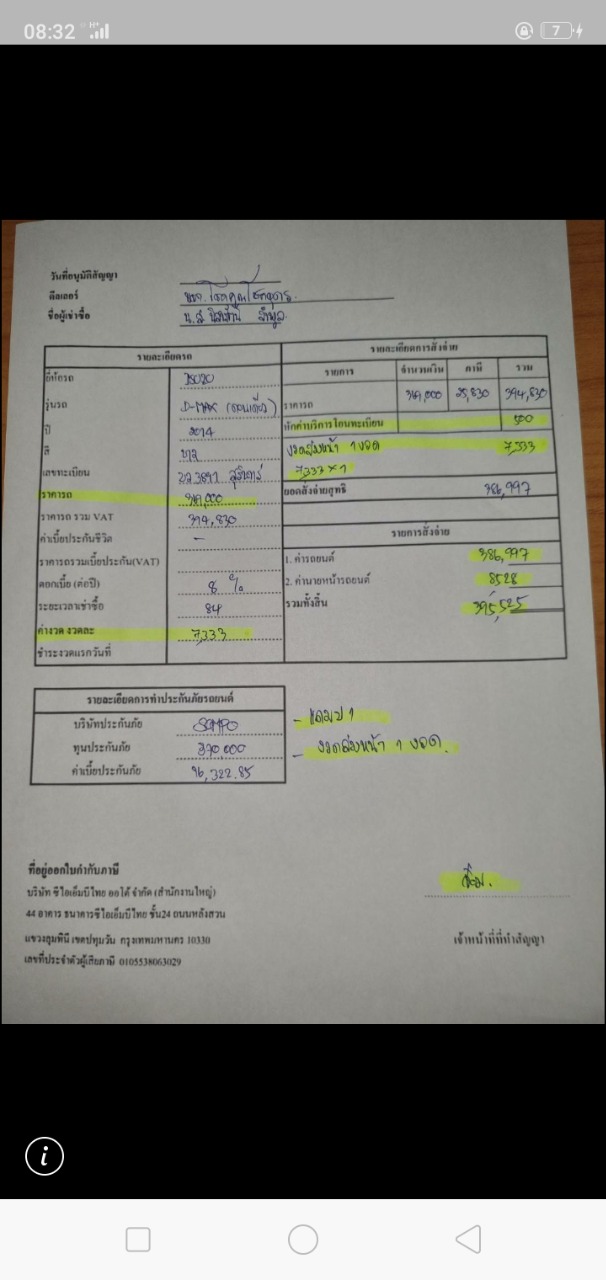 08:32 H+ 7
วันที่อนุมัติสัญญา
ดีลเลอร์
ชื่อผู้เช่าซื้อ น.ส.
รายละเอียดรถ
ยี่ห้อรถ ISUZU
รุ่นรถ D-MAX (ตอนเดียว)
ปี 2014
สี ขาว
เลขทะเบียน
ราคารถ 369,000
ราคารถ รวม VAT 394,830
ค่าเบี้ยประกันชีวิต -
ราคารถรวมเบี้ยประกัน(VAT)
ดอกเบี้ย (ต่อปี) 8 %
ระยะเวลาเช่าซื้อ 84
ค่างวด งวดละ 7,333
ชำระงวดแรกวันที่
รายละเอียดการสั่งจ่าย
รายการ จำนวนเงิน ภาษี รวม
ราคารถ 369,000 25,830 394,830
หักค่าบริการโอนทะเบียน 500
งวดล่วงหน้า 1 งวด 7,333
7,333 x 1
ยอดสั่งจ่ายสุทธิ 386,997
รายการสั่งจ่าย
1. ค่ารถยนต์ 386,997
2. ค่านายหน้ารถยนต์ 8528
รวมทั้งสิ้น 395,525
รายละเอียดการทำประกันภัยรถยนต์
บริษัทประกันภัย SOMPO
ทุนประกันภัย 370,000
ค่าเบี้ยประกันภัย 16,322.85
- แถมป 1
- งวดล่วงหน้า 1 งวด.
ที่อยู่ออกใบกำกับภาษี
บริษัท ซีไอเอ็มบีไทย ออโต้ จำกัด (สำนักงานใหญ่)
44 อาคาร ธนาคารซีไอเอ็มบีไทย ชั้น24 ถนนหลังสวน
แขวงลุมพินี เขตปทุมวัน กรุงเทพมหานคร 10330
เลขที่ประจำตัวผู้เสียภาษี 0105538063029
เจ้าหน้าที่ที่ทำสัญญา